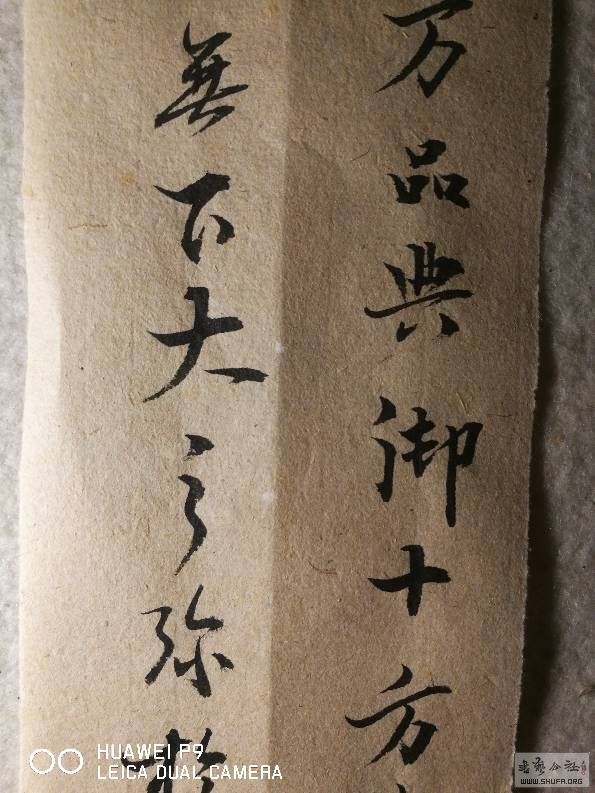 万品典御十方
無下大之弥
HUAWEI P9
LEICA DUAL CAMERA
书艺公社
WWW.SHUFA.ORG